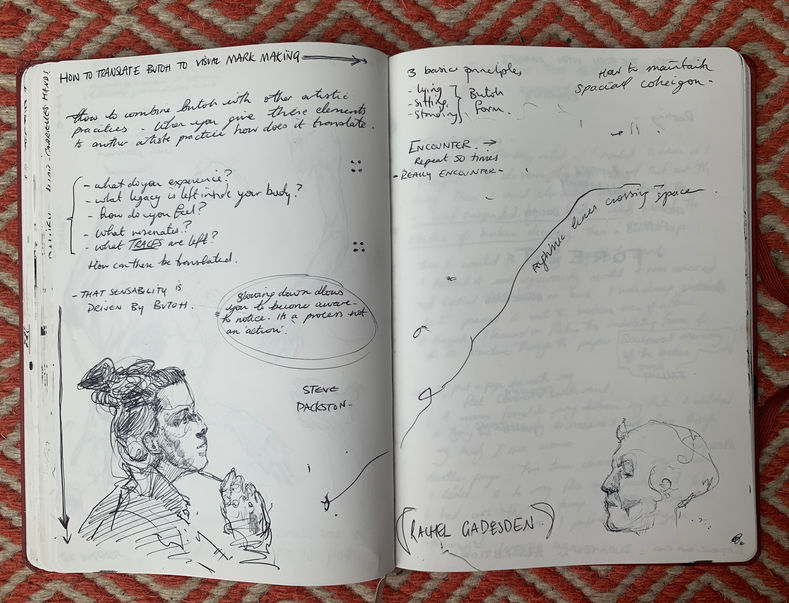 HOW TO TRANSLATE BUTOH TO VISUAL MARK MAKING
How to combine Butoh with other artistic
practices - When you give these elements
to another artists practice how does it translate.
- what do you experience?
- what legacy is left inside your body?
- how do you feel?
- what resonates?
- what TRACES are left?
How can these be translated.
- THAT SENSABILITY IS
DRIVEN BY BUTOH.
Slowing down allows
you to become aware -
to notice. Its a process not
an 'action'.
STEVE
PACKSTON-
3 basic principles
- Lying
- Sitting
- Standing
Butoh
Form.
How to maintain
spacial cohesion -
ENCOUNTER. →
REPEAT 50 TIMES
- REALLY ENCOUNTER -
lines crossing space
(RACHEL GADESDEN)